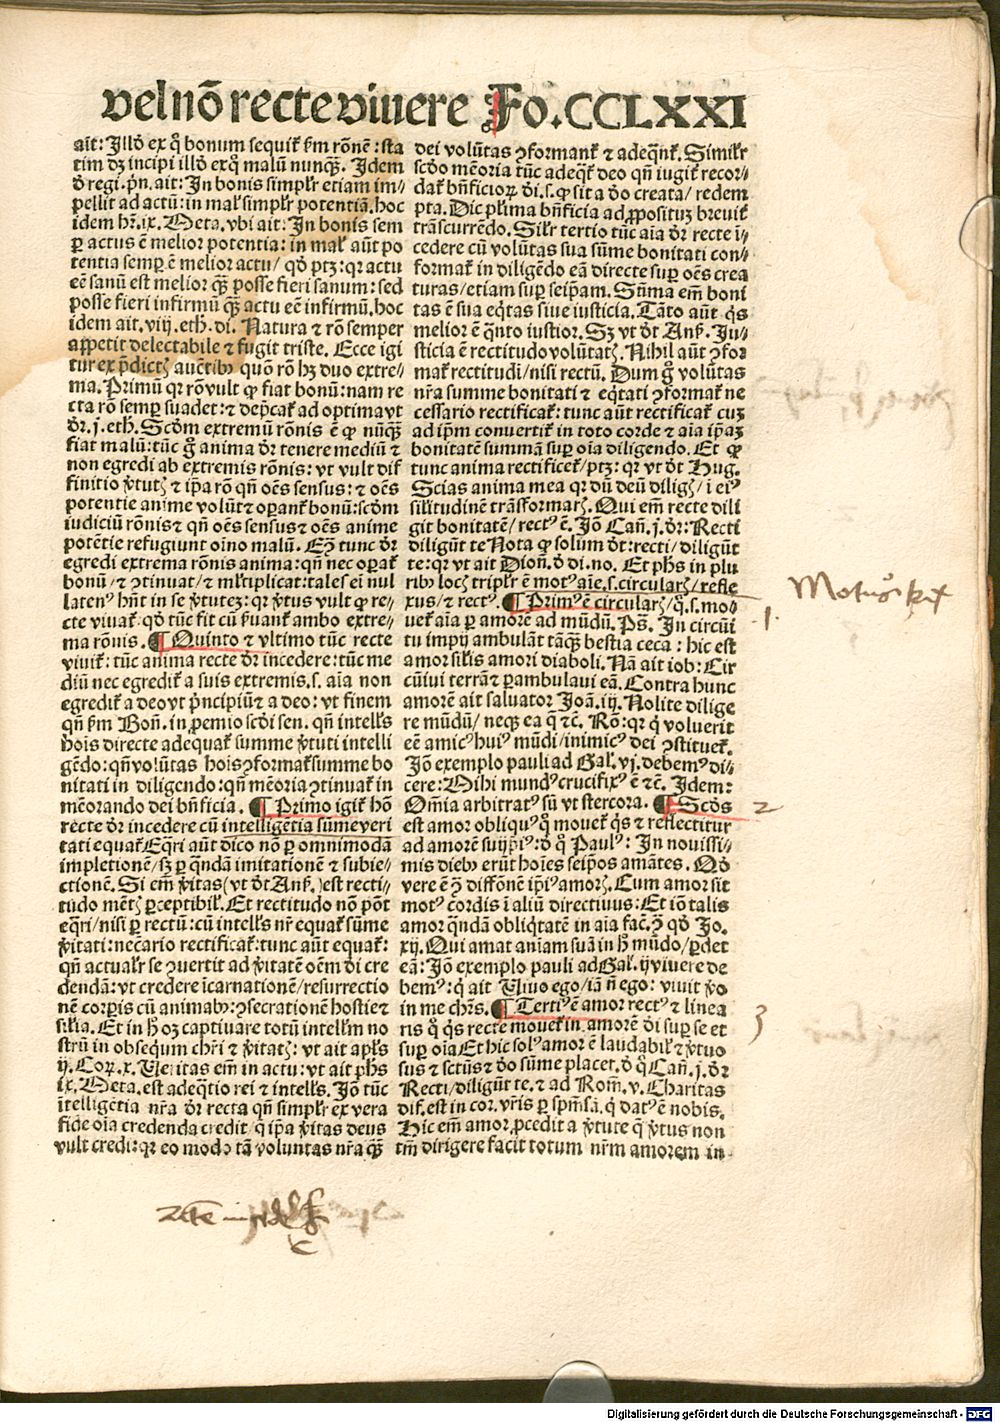 vel nō recte viuere Fo.CCLXXI
ait: Illđ ex q̊ bonum sequit̃ ẜm rōnē: sta
tim dꝫ incipi illđ ex q̊ malū nunqꝫ. Idem
đ regi. pn̄. ait: In bonis simpl̃r etiam im⸗
pellit ad actū: in mal̃ simpl̃r potentiā. hoc
idem hr̄. ix. Meta. vbi ait: In bonis sem
ꝑ actus ē melior potentia: in mal̃ aūt po
tentia semꝑ ē melior actu/ qđ ptꝫ: qꝛ actu
eē sanū est melior qꝫ̄ posse fieri sanum: sed
posse fieri infirmū qꝫ̄ actu eē infirmū. hoc
idem ait. viij. eth. di. Natura ⁊ rō semper
appetit delectabile ⁊ fugit triste. Ecce igi
tur ex p̄dictꝭ auctēibꝰ quōn rō hꝫ duo extre⸗
ma. Primū qꝛ rō vult ꝙ fiat bonū: nam re
cta rō semꝑ suadet: ⁊ dep̄cat̃ ad optima vt
dr̄. j. eth. Scđm extremū rōnis ē ꝙ nūqꝫ̄
fiat malū: tūc g̊ anima dr̄ tenere mediū ⁊
non egredi ab extremis rōnis: vt vult dif
finitio v̓tutꝭ ⁊ ip̄a rō qn̄ oēs sensus: ⁊ oēs
potentie anime volūt ⁊ oꝑant̃ bonū: scđm
iudiciū rōnis ⁊ qn̄ oēs sensus ⁊ oēs anime
potētie refugiunt oīno malū. Etꝫ tunc dr̄
egredi extrema rōnis anima: qn̄ nec oꝑat̃
bonū/ ⁊ ꝯtinuat/ ⁊ ml̓tiplicat: tales ei nul
latenꝰ hn̄t in se v̓tutez: qꝛ v̓tus vult ꝙ re⸗
cte viuat̃. qđ tūc fit cū ẜuant̃ ambo extre⸗
ma rōnis. ¶ Quinto ⁊ vltimo tūc recte
viuit̃: tūc anima recte dr̄ incedere: tūc me
diū nec egredit̃ a suis extremis. s. aīa non
egredit̃ a deo vt p̓ncipiū ⁊ a deo: vt finem
qn̄ ẜm Bon̄. in ꝓemio scđi sen. qn̄ intell̓s
hoīs directe adequat̃ summe v̓tuti intelli
gēdo: qn̄ volūtas hoīs ꝯformat̃ summe bo
nitati in diligendo: qn̄ mēoria ꝯtinuat̃ in
mēorando dei bn̄ficia. ¶ Primo igit̃ hō
recte dr̄ incedere cū intelligētia sūme veri
tati equat̃ Eq̄ri aūt dico nō ꝑ omnimodā
impletionē/ sꝫ ꝑ qn̄dā imitationē ⁊ subie⸗
ctionē. Si em̄ v̓itas (vt dt̄ Anẜ.) est recti⸗
tudo mētꝭ ꝑceptibil̃. Et rectitudo nō pōt
eq̄ri/ nisi ꝑ rectū: cū intell̓s nr̄ equat̃ sūme
v̓itati: nec̄ario rectificat̃: tunc aūt equat̃:
qn̄ actual̓r se ꝯuertit ad v̓itatē oēm đi cre
dendā: vt credere īcarnationē/ resurrectio
nē corꝑis cū animabꝰ: ꝯsecrationē hostie ⁊
sil̓ia. Et in h̊ oꝫ captiuare totū intell̓m no
strū in obsequm̄ chr̄i ⁊ v̓itatꝭ: vt ait apl̓s
ij. Coꝝ. x. Veritas em̄ in actu: vt ait ph̄s
ix. Meta. est adeq̄tio rei ⁊ intell̓s. Iō tūc
ītelligētia nr̄a dr̄ recta qn̄ simpl̓r ex vera
fide oīa credenda credit/ q̄ ip̄a v̓itas deus
vult credi: qꝛ eo modo tā voluntas nr̄a qꝫ̄
dei volūtas ꝯformant̃ ⁊ adeq̄nt̃. Simil̓r
scđo mēoria tūc adeqt̃ deo qn̄ iugit̃ recor⸗
dat̃ bn̄ficioꝝ đi. s. ꝙ sit a đo creata/ redem
pta. Dic p̓lima bn̄ficia ad ꝓpositū breuit̃
trāscurrēdo. Sil̓r tertio tūc aīa dr̄ recte ī⸗
cedere cū volūtas sua sūme bonitati con⸗
format̃ in diligēdo eā directe suꝑ oēs crea
turas/ etiam suꝑ seip̄am. Sūma em̄ boni
tas ē sua eq̄tas siue iusticia. Tāto aūt q̊s
melior ē q̄nto iustior. Sꝫ vt dt̄ Anẜ. Iu⸗
sticia ē rectitudo volūtatꝭ. Nihil aūt ꝯfor
mat̃ rectitudi/ nisi rectū. Dum g̊ volūtas
nr̄a summe bonitati ⁊ eq̄tati ꝯformat̃ ne
cessario rectificat̃: tunc aūt rectificat̃ cuꝫ
ad ip̄m conuertit̃ in toto corde ⁊ aīa ip̄aꝫ
bonitatē summā suꝑ oīa diligendo. Et ꝙ
tunc anima rectificet̃/ ptꝫ: qꝛ vt dt̄ Hug.
Scias anima mea qꝛ dū deū diligꝭ/ i eiꝰ
silitudinē trāsformarꝭ. Qui em̄ recte dili
git bonitatē/ rectꝰ ē. Iō Can̄. j. dr̄: Recti
diligūt te Nota ꝙ solum dt̄: recti/ diligūt
te: qꝛ vt ait Dion̄. đ di. no. Et ph̄s in plu
ribꝰ locꝭ tripl̓r ē motꝰ aīe. s. circularꝭ/ refle
xus/ ⁊ rectꝰ. ¶ Primꝰ ē circularꝭ/ q̊. s. mo⸗
uet̃ aīa ꝑ amorē ad mūdū. Ps̄. In circūi
tu impij ambulāt tāqꝫ bestia ceca: hic est
amor silis amori diaboli. Nā ait iob: Cir
cūiui terrā ⁊ ꝑambulaui eā. Contra hunc
amorē ait saluator Joā. iij. Nolite dilige
re mūdū/ neqꝫ ea q̄ ⁊c̄. Rō: qꝛ q̇ voluerit
eē amicꝰ huiꝰ mūdi/ inimicꝰ dei ꝯstituet̃.
Iō exemplo pauli ad Gal. vj. debemꝰ di⸗
cere: Mihi mundꝰ crucifixꝰ ē ⁊c̄. Idem:
Om̄ia arbitratꝰ sū vt stercora. ¶ Scđs
est amor obliquꝰ q̊ mouet̃ q̊s ⁊ reflectitur
ad amorē suijp̄i: đ q̊ Paulꝰ: In nouissi⸗
mis diebꝰ erūt hoīes seip̄os amātes. Qđ
vere ē ꝯ̓ diffōnē ip̄iꝰ amorꝭ. Cum amor sit
motꝰ cordis ī aliū directiuus: Et iō talis
amor qn̄dā obliq̄tatē in aīa fac̄. ꝯ̓ qđ Jo.
xij. Qui amat animā suā in h̊ mūdo/ ꝑdet
eā: Iō exemplo pauli ad Gal. ij viuere de
bemꝰ: q̇ ait Viuo ego/ iā n̄ ego: viuit v̓o
in me chr̄s. ¶ Tertiꝰ ē amor rectꝰ ⁊ linea
ris q̊ q̊s recte mouet̃ in amorē đi suꝑ se et
suꝑ oīa Et hic solꝰ amor ē laudabil̃ ⁊ v̓tuo
sus ⁊ sctūs ⁊ đo sūme placet. đ q̊ Can̄. j. dr̄
Recti/ diligūt te. ⁊ ad Rom̄. v. Charitas
dif. est in cor. vr̄is ꝑ spm̄ sā. q̇ datꝰ ē nobis.
Hic em̄ amor ꝓcedit a v̓tute q̄ v̓tus non
tm̄ dirigere facit totum nr̄m amorem in⸗
1.
2
3
Digitalisierung gefördert durch die Deutsche Forschungsgemeinschaft - DFG